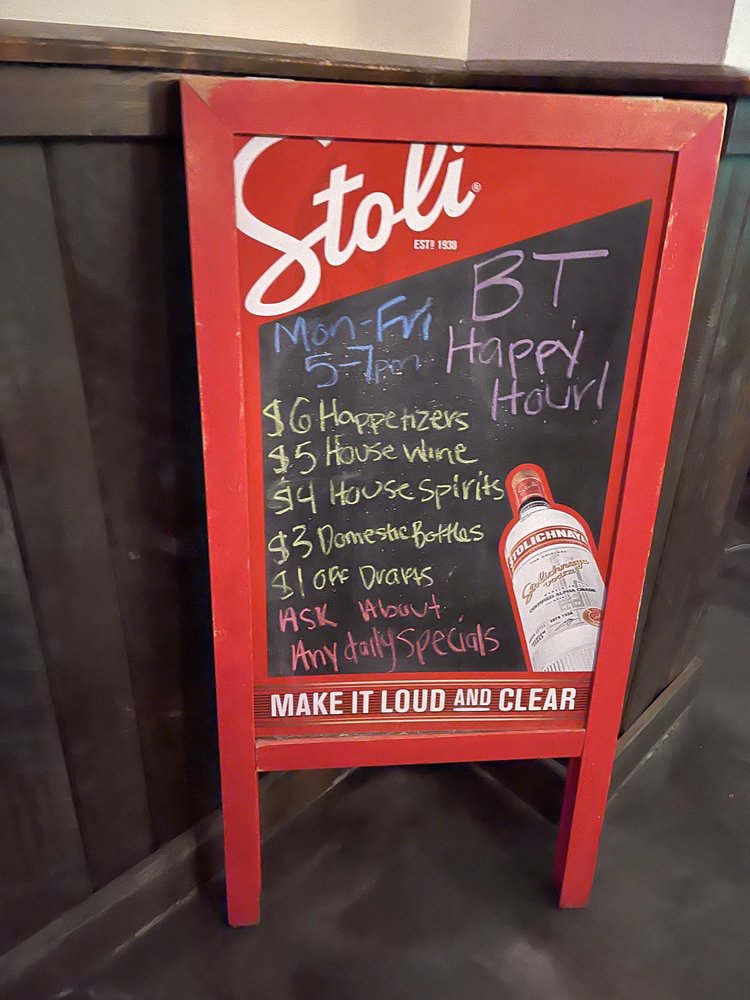 Stoli®
ESTD 1938
BT
Happy
Hour!
Mon-Fri
5-7pm
$6 Happetizers
$5 House Wine
$4 House Spirits
$3 Domestic Bottles
$1 Off Drafts
Ask About
Any daily specials
STOLICHNAYA
THE ORIGINAL
Stolichnaya
vodka
CERTIFIED ALPHA GRADE
MAKE IT LOUD AND CLEAR